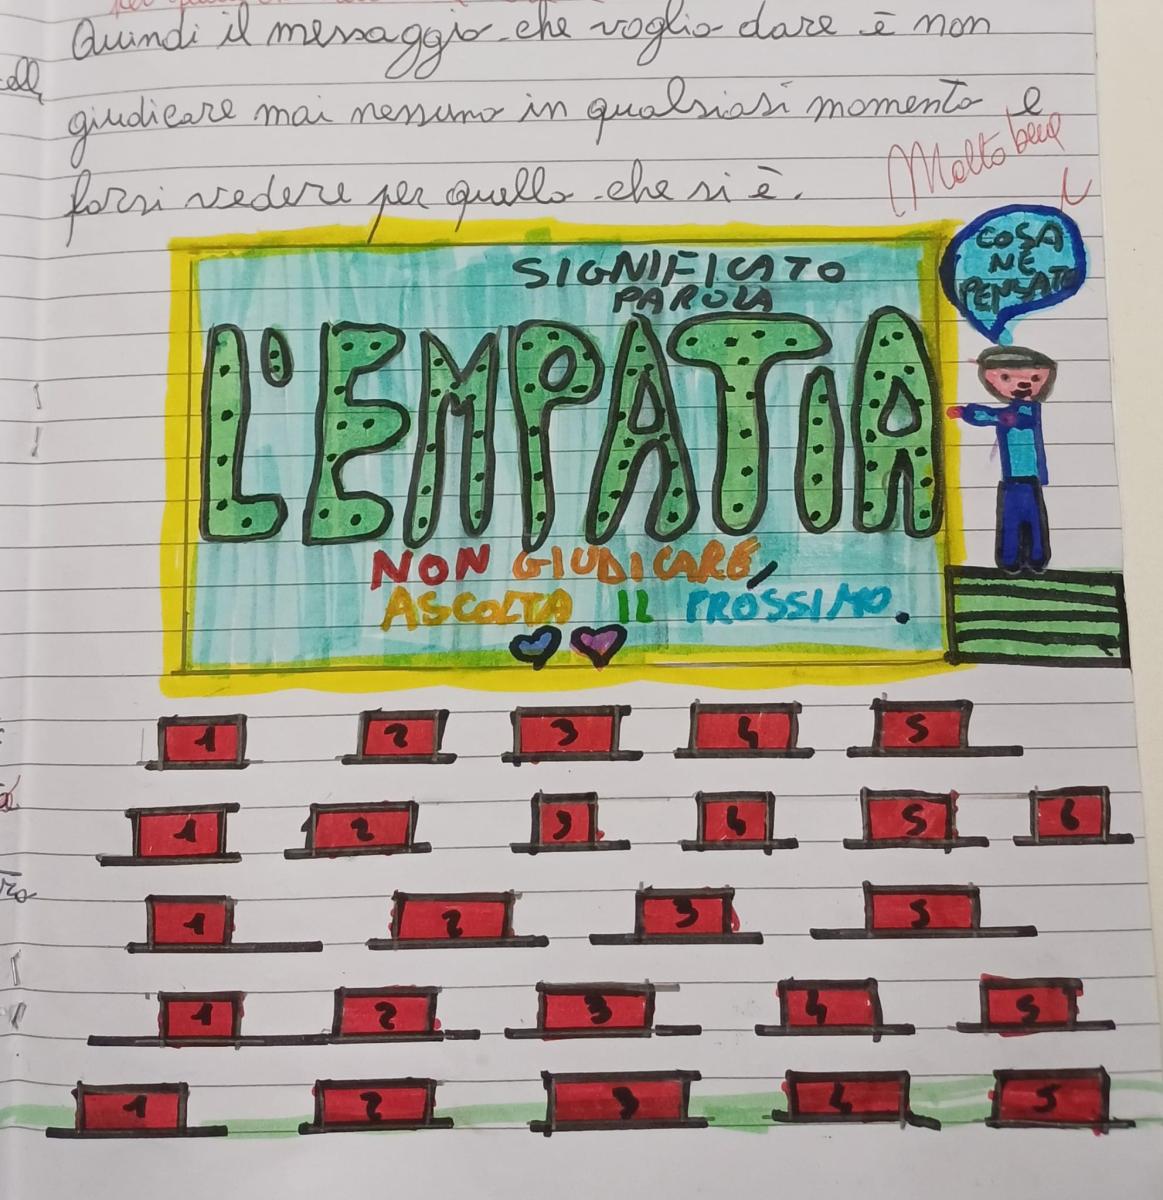 Quindi il messaggio che voglio dare è non
giudicare mai nessuno in qualsiasi momento e
farsi vedere per quello che si è.
Molto bene
SIGNIFICATO
PAROLA
L'EMPATIA
NON GIUDICARE,
ASCOLTA IL PROSSIMO.
COSA
NE
PENSATE
1 2 3 4 5
1 2 3 4 5 6
1 2 3 5
1 2 3 4 5
1 2 3 4 5